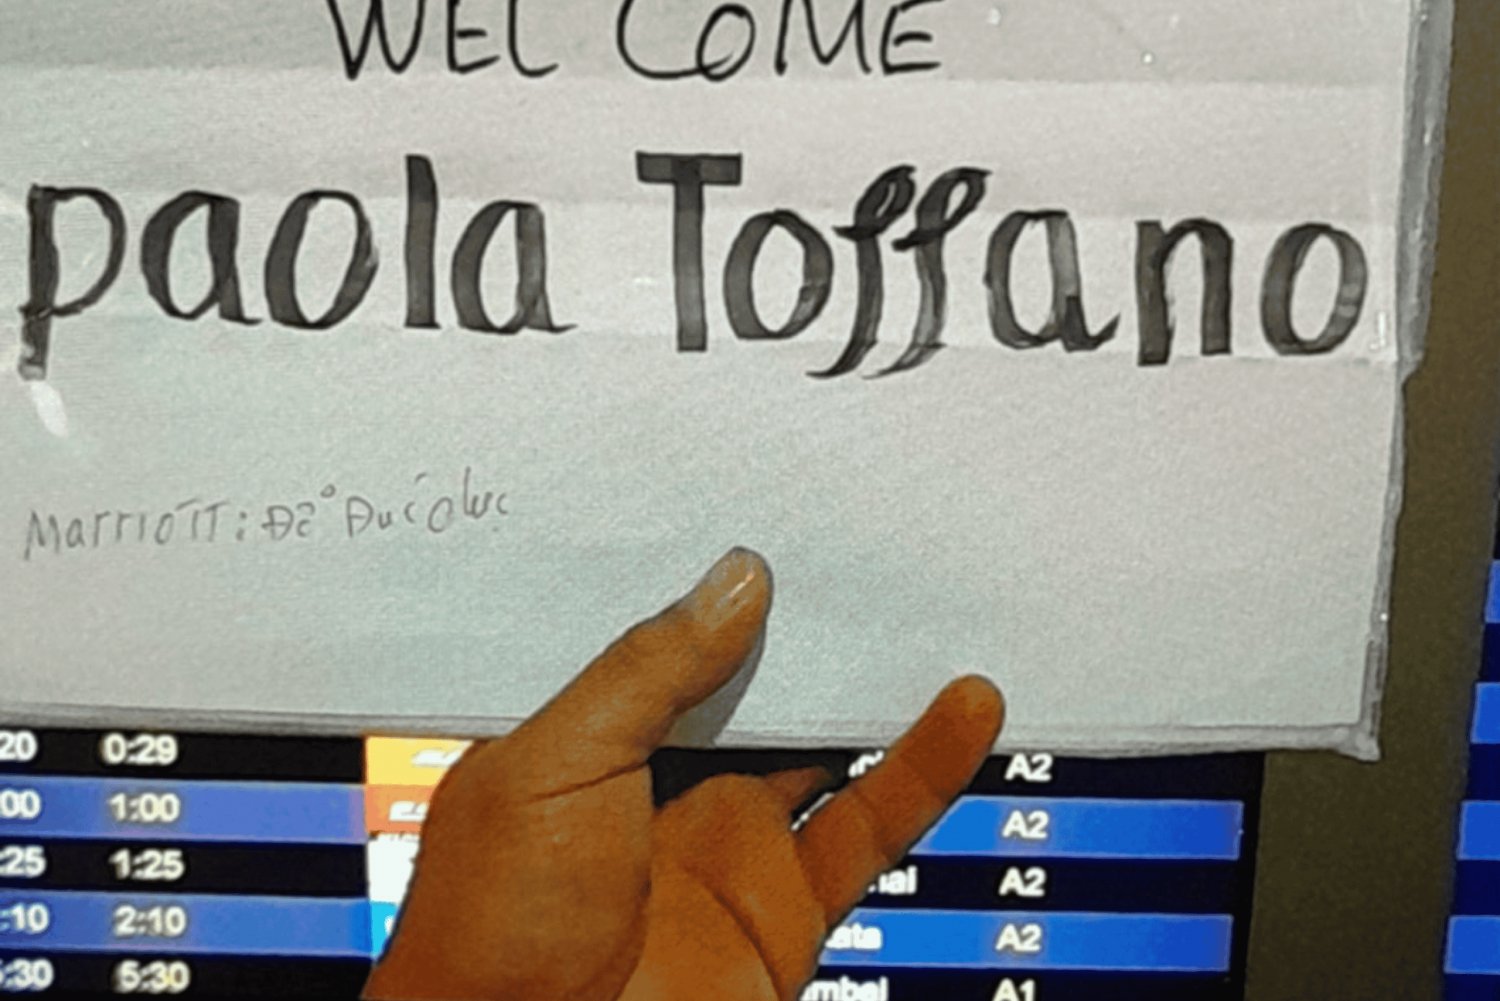 WELCOME
paola Toffano
Marriott: Để Đức
20 0:29 A2
00 1:00 A2
:25 1:25 A2
:10 2:10 A2
5:30 5:30 A1